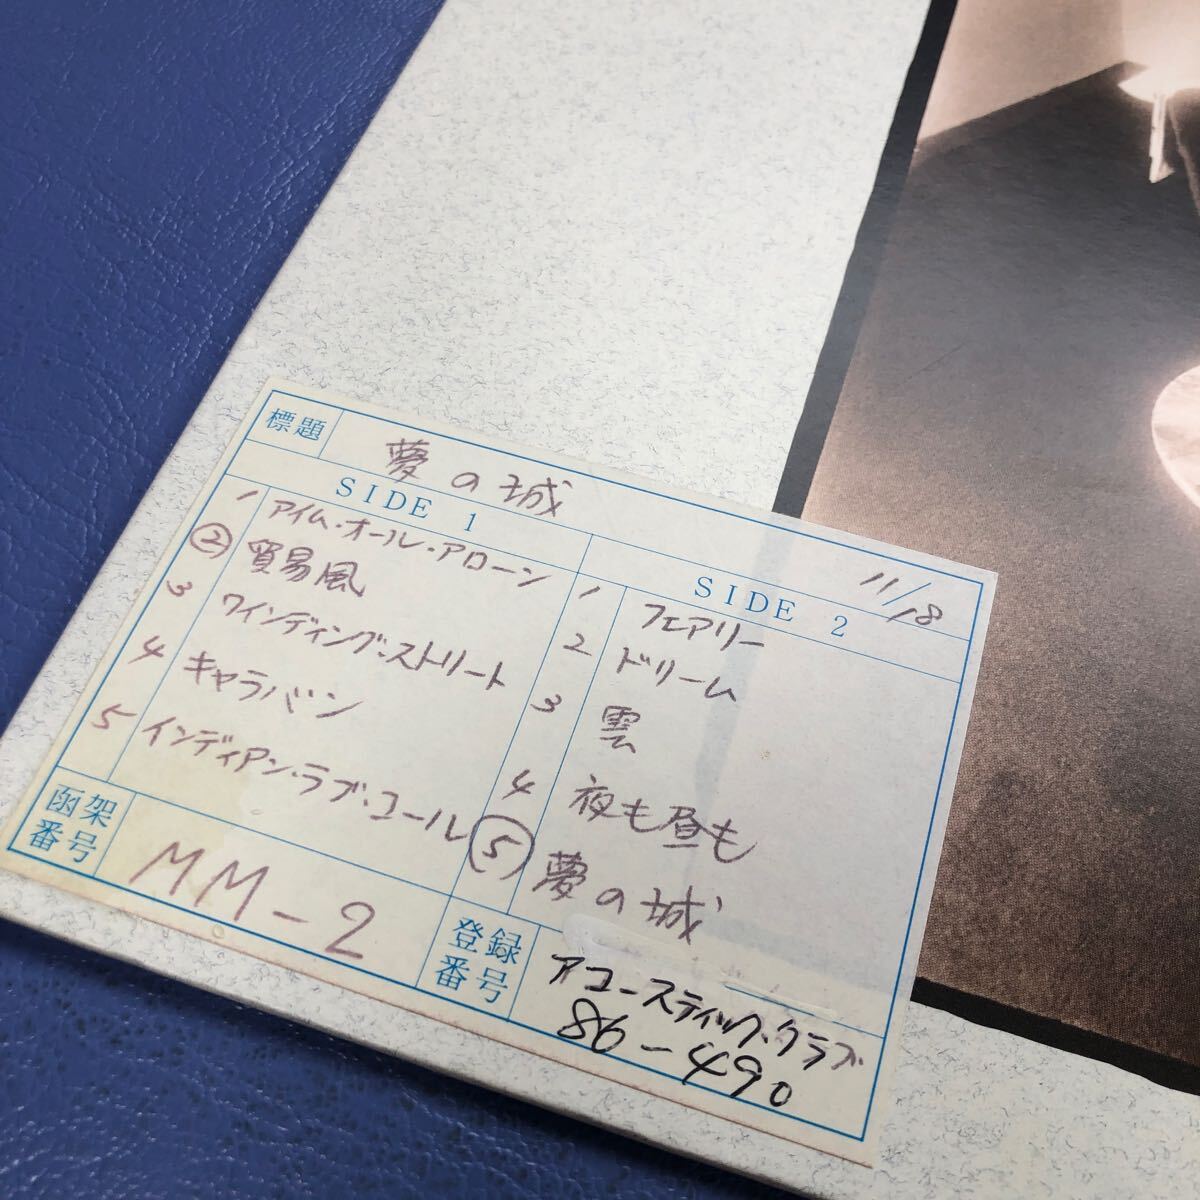 標題 夢の城
SIDE 1
1 アイム・オール・アローン
② 貿易風
3 ワインディング・ストリート
4 キャラバン
5 インディアン・ラブ・コール
11/18
SIDE 2
1 フェアリー
2 ドリーム
3 雲
4 夜も昼も
⑤ 夢の城
函架番号 MM-2
登録番号 アコースティック・クラブ
86-490